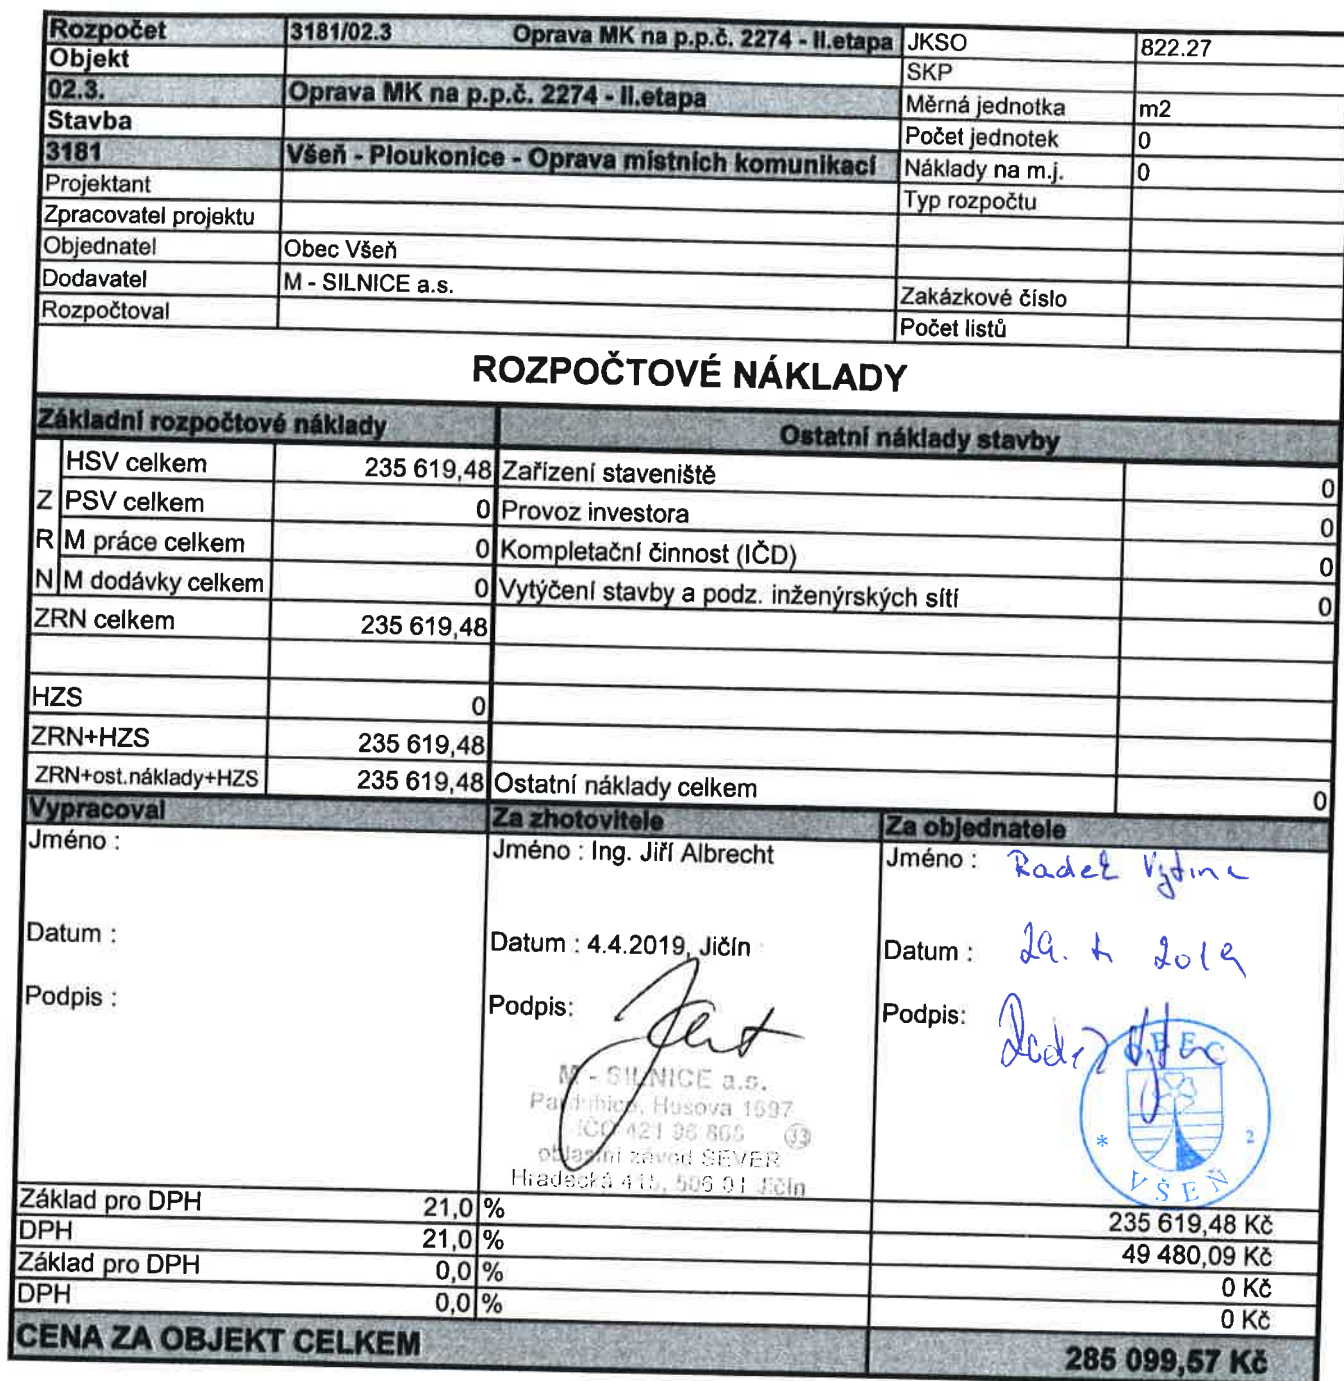 Rozpočet 3181/02.3 Oprava MK na p.p.č. 2274 - II.etapa JKSO 822.27
Objekt SKP
02.3. Oprava MK na p.p.č. 2274 - II.etapa Měrná jednotka m2
Stavba Počet jednotek 0
3181 Všeň - Ploukonice - Oprava místních komunikací Náklady na m.j. 0
Projektant Typ rozpočtu
Zpracovatel projektu
Objednatel Obec Všeň
Dodavatel M - SILNICE a.s. Zakázkové číslo
Rozpočtoval Počet listů
ROZPOČTOVÉ NÁKLADY
Základní rozpočtové náklady Ostatní náklady stavby
HSV celkem 235 619,48 Zařízení staveniště 0
Z PSV celkem 0 Provoz investora 0
R M práce celkem 0 Kompletační činnost (IČD) 0
N M dodávky celkem 0 Vytýčení stavby a podz. inženýrských sítí 0
ZRN celkem 235 619,48
HZS 0
ZRN+HZS 235 619,48
ZRN+ost.náklady+HZS 235 619,48 Ostatní náklady celkem 0
Vypracoval Za zhotovitele Za objednatele
Jméno : Jméno : Ing. Jiří Albrecht Jméno : Radek
Datum : Datum : 4.4.2019, Jičín Datum : 2019
Podpis : Podpis: Podpis:
M - SILNICE a.s.
Pardubice, Husova 1697
IČO 421 96 868 33
oblastní závod SEVER
Hradecká 415, 506 01 Jičín
OBEC
* 2
VŠEŇ
Základ pro DPH 21,0 % 235 619,48 Kč
DPH 21,0 % 49 480,09 Kč
Základ pro DPH 0,0 % 0 Kč
DPH 0,0 % 0 Kč
CENA ZA OBJEKT CELKEM 285 099,57 Kč